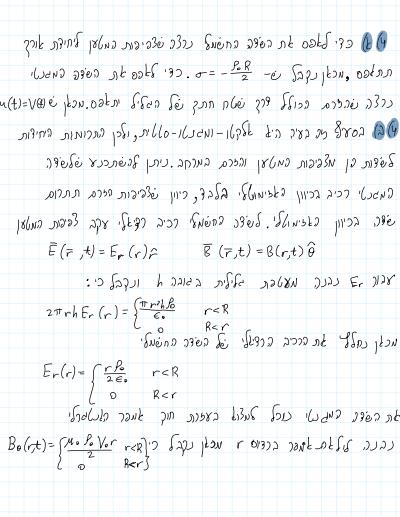 א) כדי לאפס את השדה החשמלי נרצה שצפיפות המטען ליחידת אורך
תתאפס, מכאן נקבל ש- σ = -ρ₀R/2. כדי לאפס את השדה המגנטי
נרצה שהזרם הכולל דרך שטח חתך של הגליל יתאפס. מכאן ש u(t)=V(t)
ב) בסעיף זה בעיה היא אלקטרו-מגנטו-סטטית, ולכן התרומות היחידות
לשדות הן מצפיפות המטען והזרם במרחב. ניתן להשתכנע שלשדה
המגנטי רכיב בכיוון האזימוטלי בלבד, כיוון שצפיפות הזרם תתרום
שדה בכיוון האזימוטלי. לשדה החשמלי רכיב רדיאלי עקב צפיפות המטען
E̅(r̅,t) = E_r(r) r̂   B̅(r̅,t) = B(r,t) θ̂
עבור E_r נבנה מעטפת גלילית בגובה h ונקבל כי:
2πrhE_r(r) = { πr²hρ₀/ε₀  r<R
0  R<r
מכאן נחלץ את הרכיב הרדיאלי של השדה החשמלי
E_r(r) = { rρ₀/2ε₀  r<R
0  R<r
את השדה המגנטי נוכל למצוא בעזרת חוק אמפר האינטגרלי
נבנה לולאת אמפר ברדיוס r מכאן נקבל כי B_θ(r,t) = { μ₀ρ₀V₀r/2  r<R
0  R<r